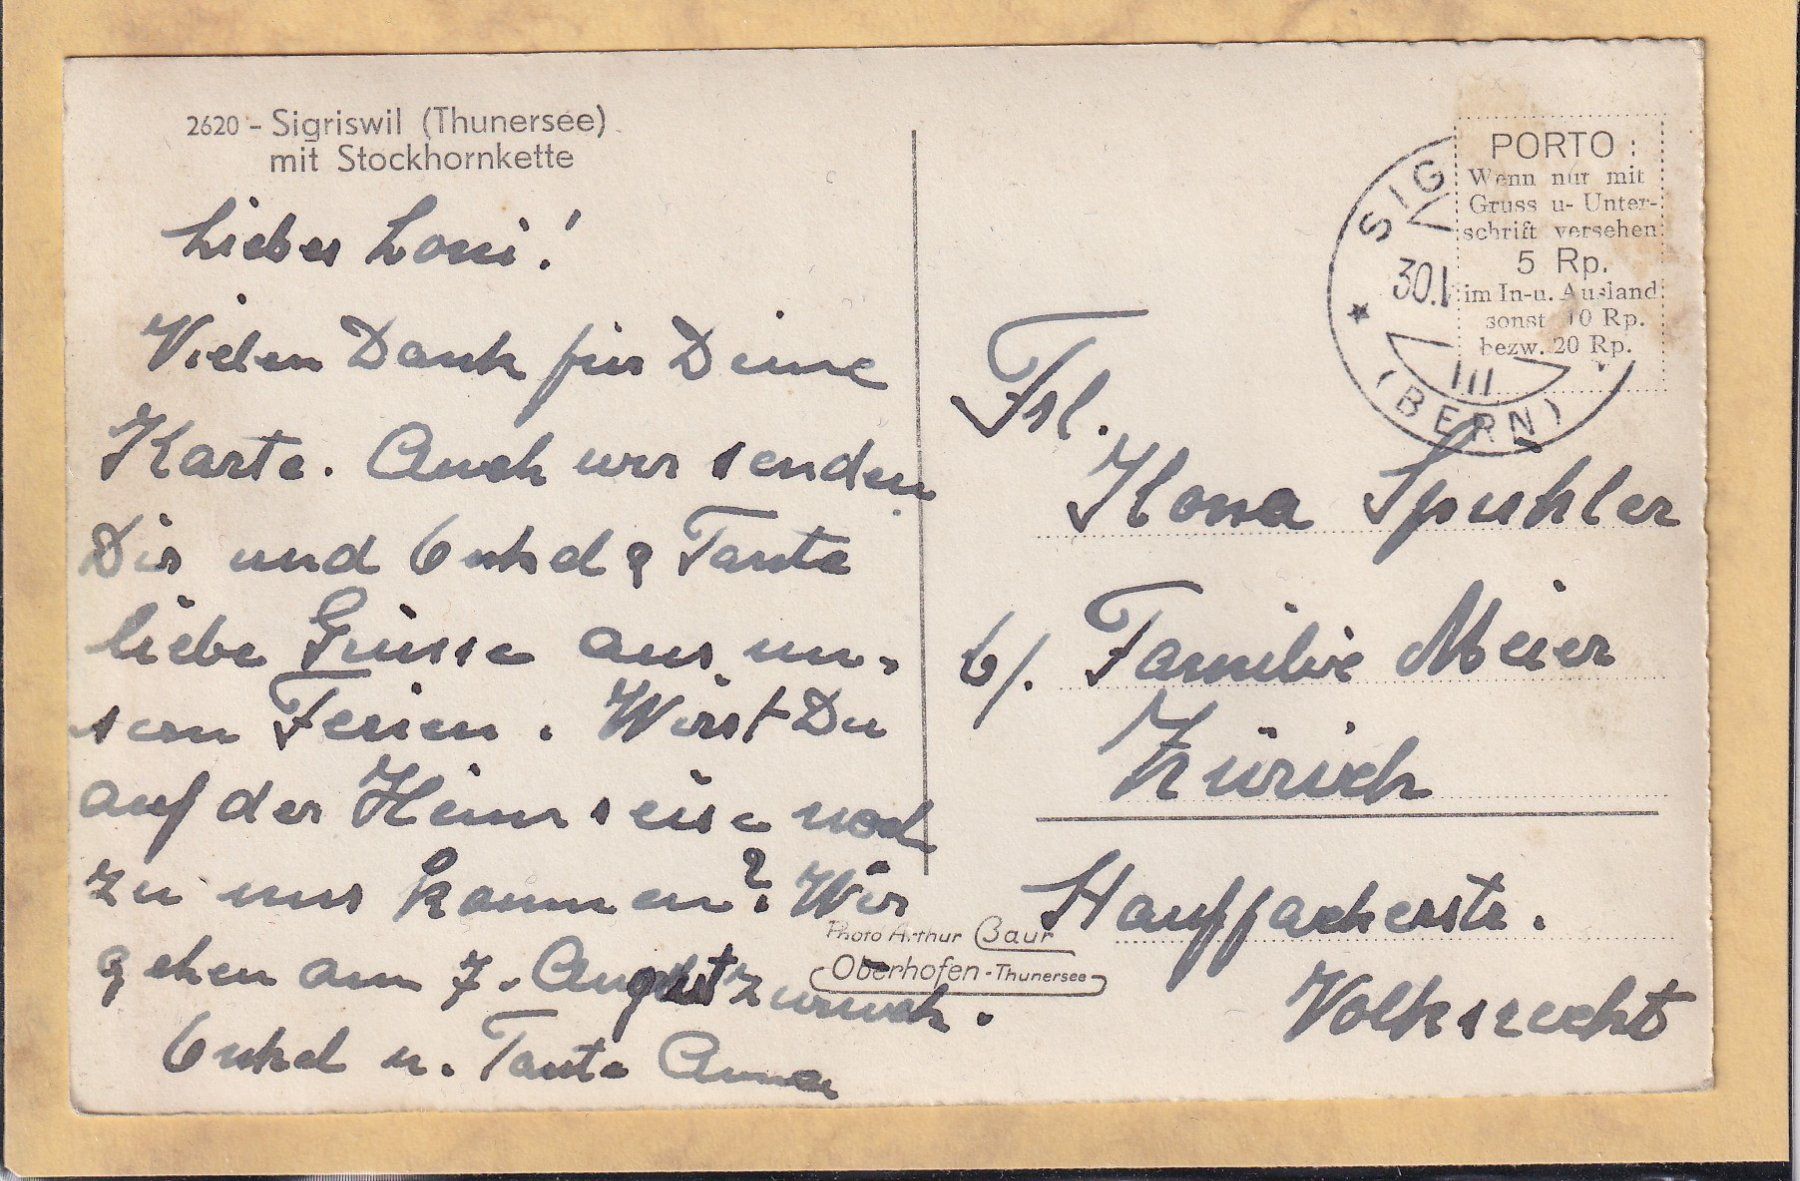 2620 - Sigriswil (Thunersee)
mit Stockhornkette
Liebes Loni!
Vielen Dank für Deine
Karte. Auch wir senden
Dir und Onkel & Tante
liebe Grüsse aus un-
sern Ferien. Wirst Du
auf der Heimreise noch
zu uns kommen? Wir
gehen am 7. August zurück.
Onkel u. Tante Anna
Photo Arthur Baur
Oberhofen - Thunersee
SIG
30.
(BERN)
PORTO:
Wenn nur mit
Gruss u- Unter-
schrift versehen
5 Rp.
im In-u. Ausland
sonst 10 Rp.
bezw. 20 Rp.
Frl.
Ilona Spuhler
b/. Familie Meier
Zürich
Stauffacherstr.
Volksrecht